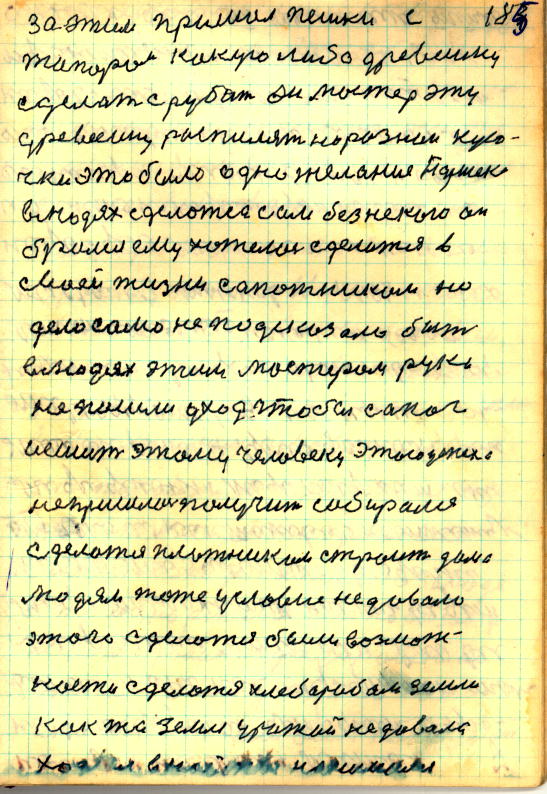 за этим пришол пешки с 183
топором какуюлибо древесину
сделат срубат он мостер эту
древесину роспилят норазнои кусо-
чки это было одно желания Паршек
влюдях сделотся сам безнекого он
брался ему хотелос сделотся в
своей жизни сапожником но
дело само не подсказало быт
влюдях этим мостером руки
непошли уход чтобы сапог
сешит этому человеку этого успеха
непришлос получит собирался
сделотся плотником строит дома
людям тоже условие недовало
этого сделотся были возмож-
ности сделотся хлебаробом земли
какжа земля урожай недовала